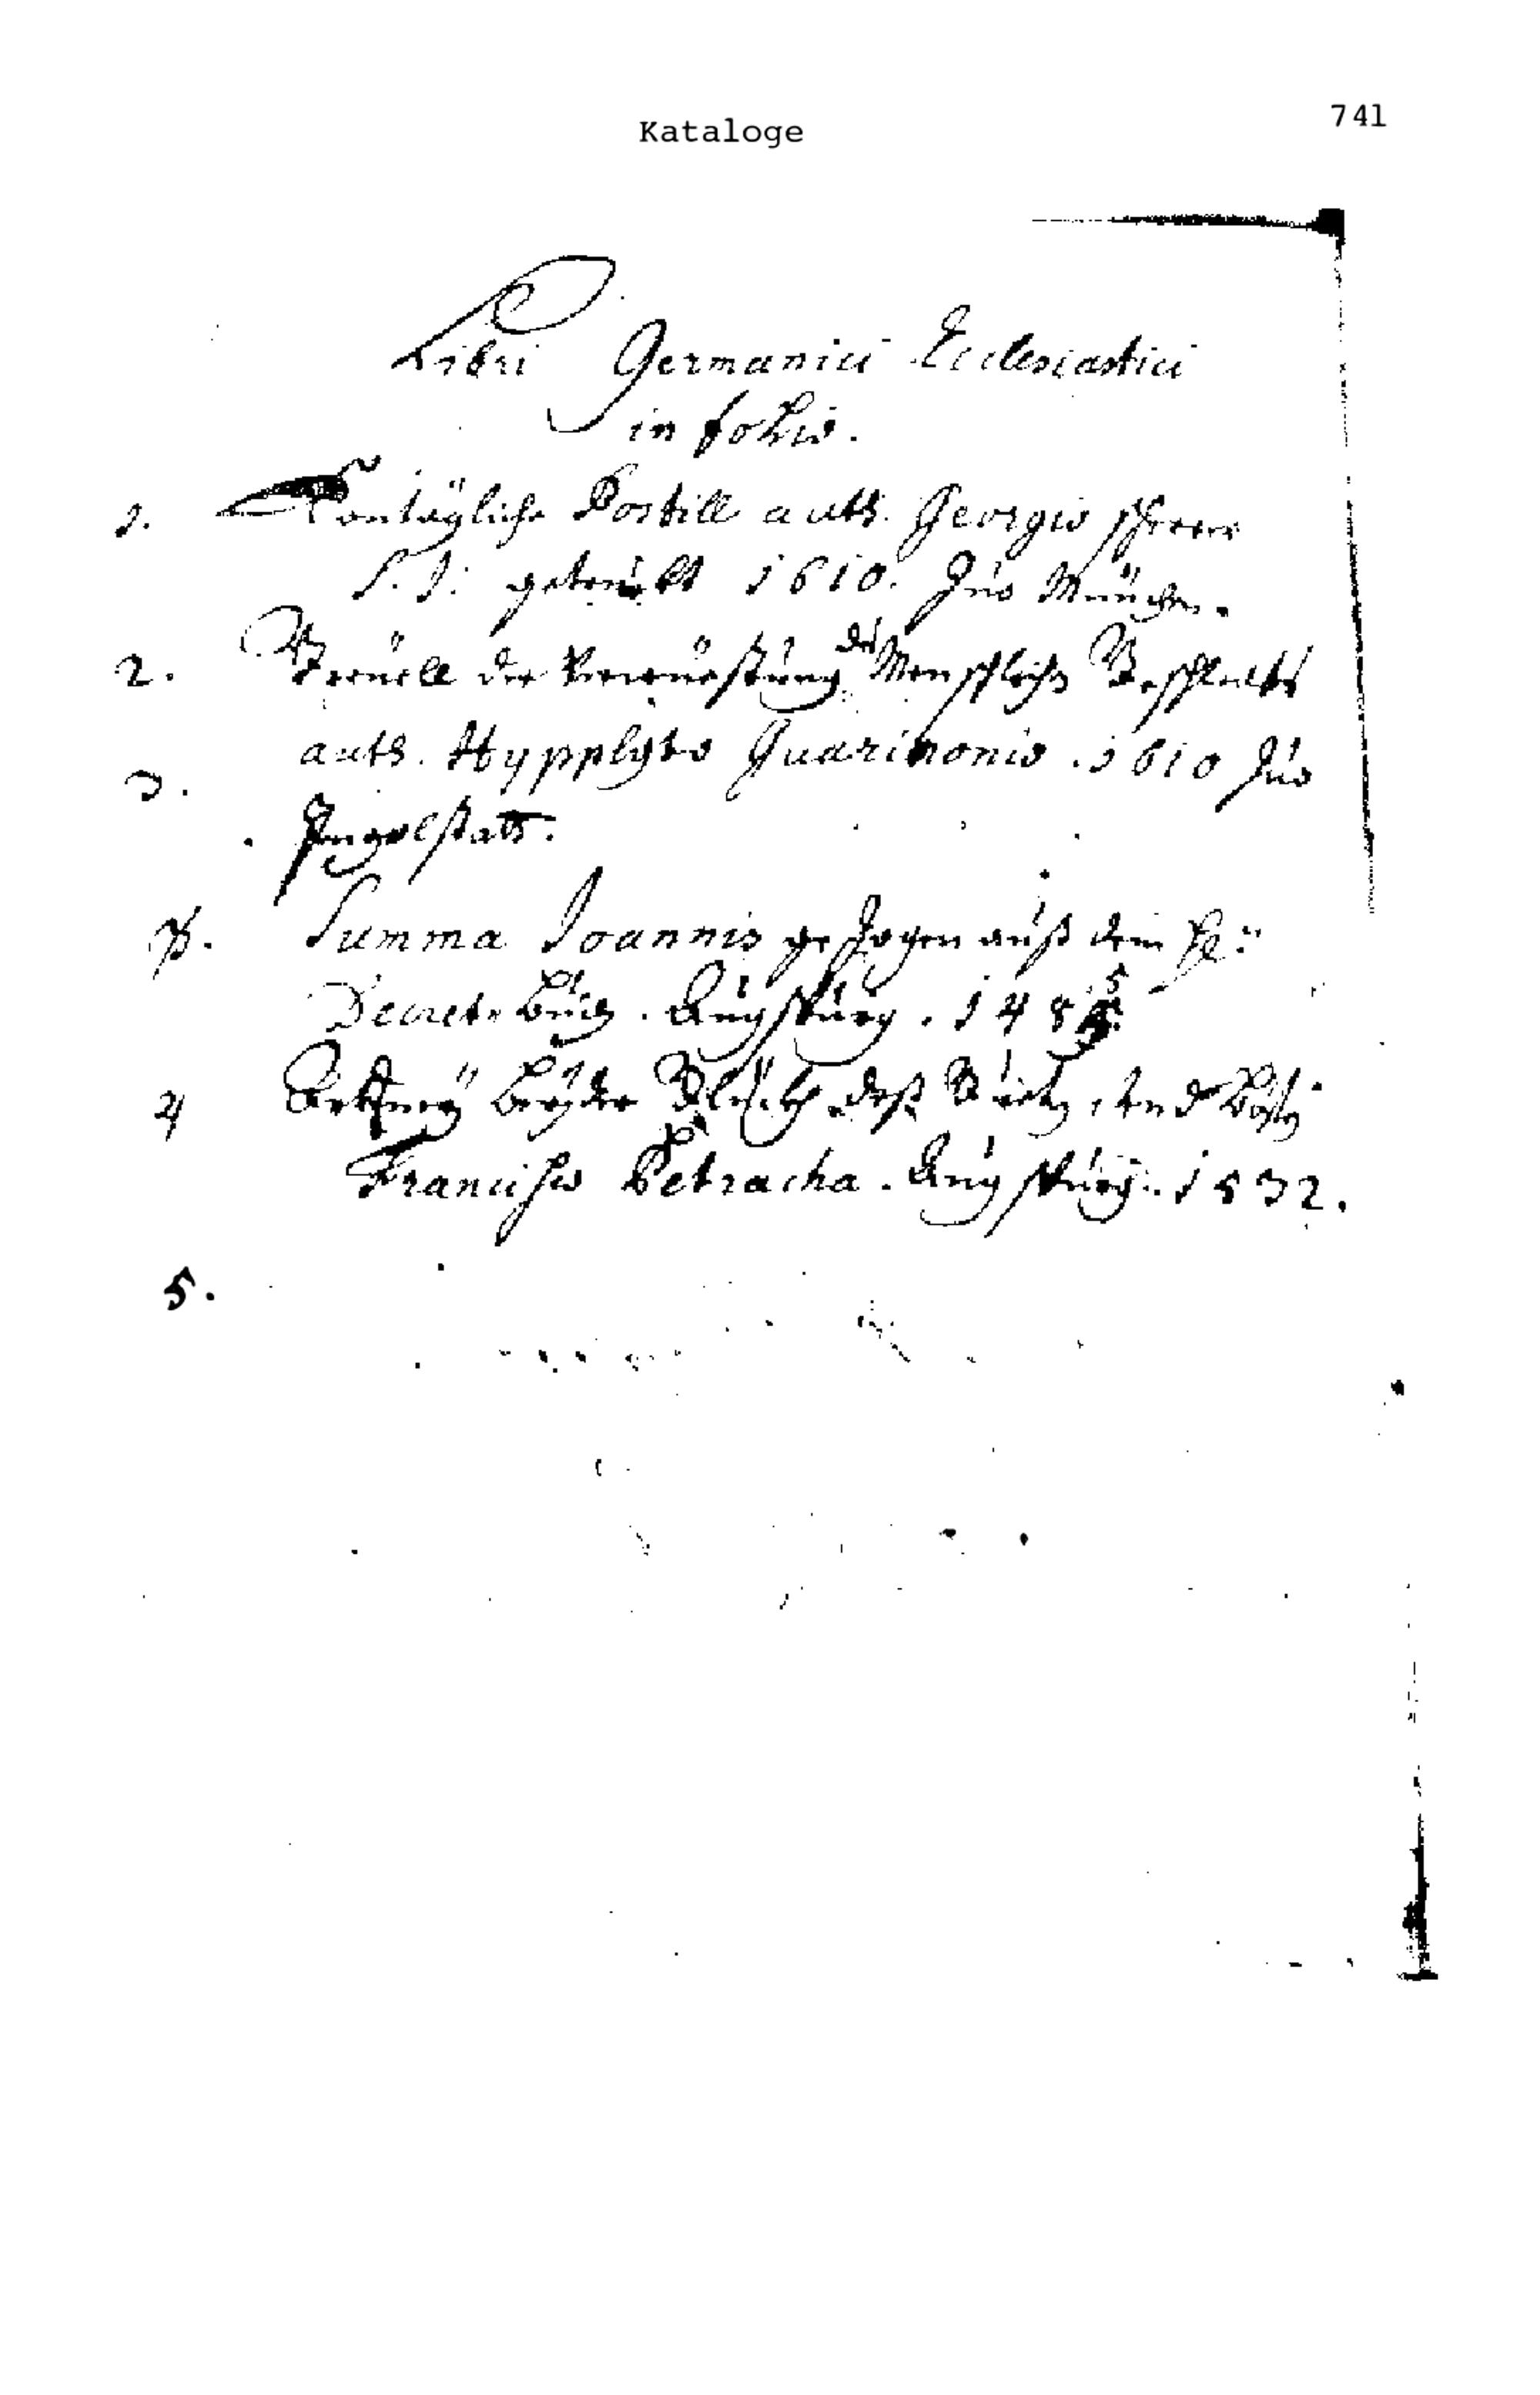 Kataloge 741
Libri Germanici Ecclesiastici
in folio.
1. Sontägliche Postill auth. Georgio Scherer
S. J. getruckt 1610. Zuo München.
2. Greüell der Verwüestung des Menschlichen Geschlechts
auth. Hyppolyto Guarinonio. 1610 Zuo
3.
Ingolstatt.
Summa Joannis gezogen auß dem
Decret buch. Augspurg. 1485
4 Artzney beyder Glückh deß guetten und bösen
Francisco Petracha. Augspurg. 1532.
5.